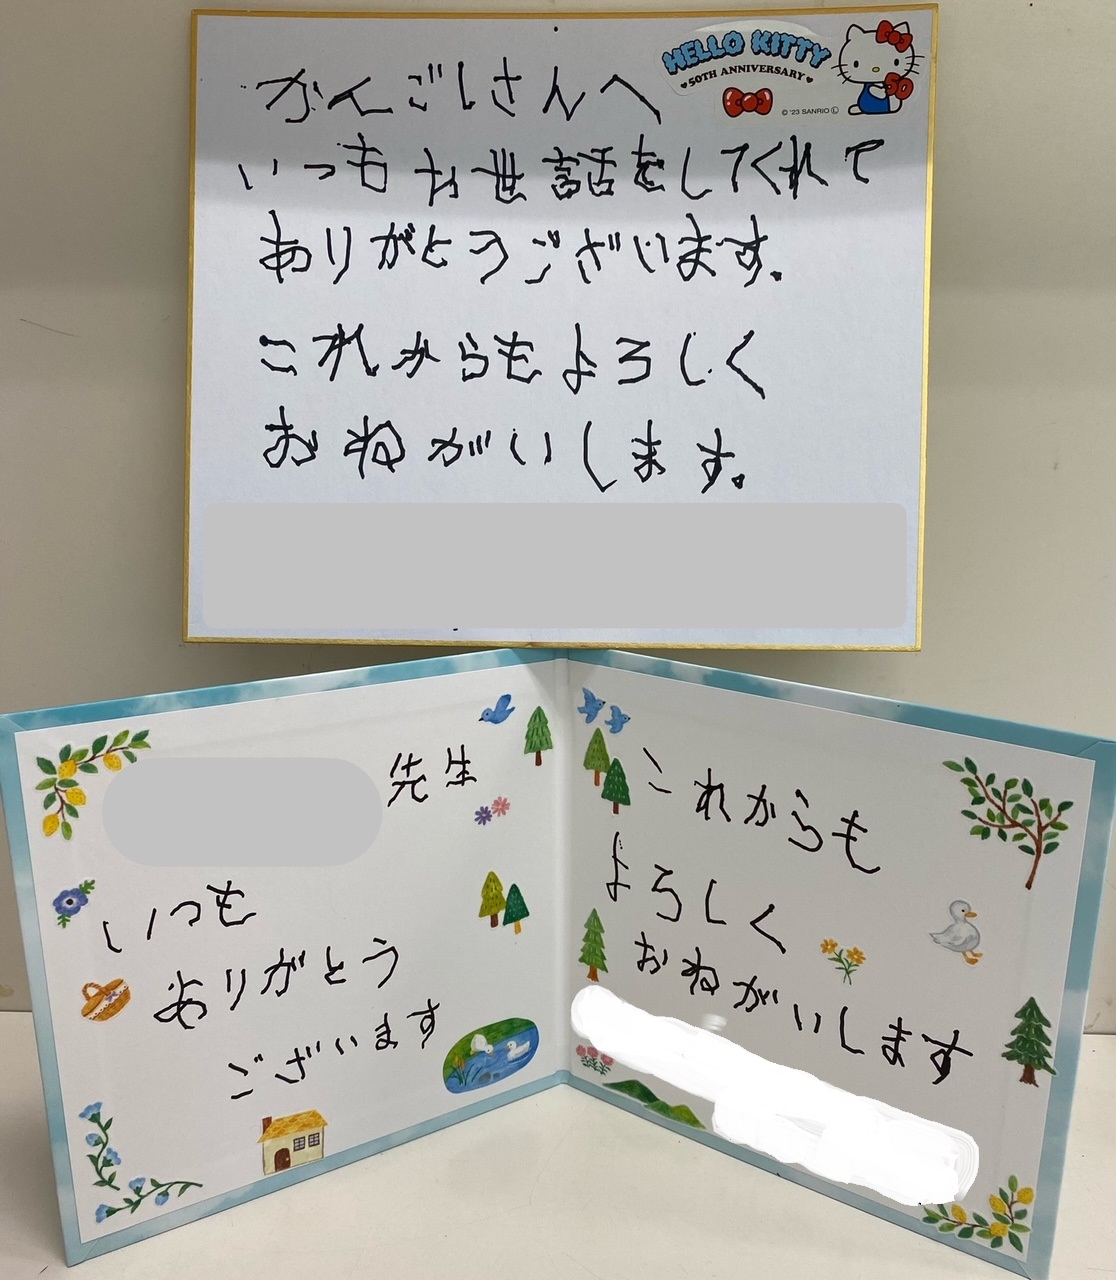 HELLO KITTY
50TH ANNIVERSARY
© '23 SANRIO Ⓛ
かんごしさんへ
いつもお世話をしてくれて
ありがとうございます。
これからもよろしく
おねがいします。
先生
いつも
ありがとう
ございます
これからも
よろしく
おねがいします